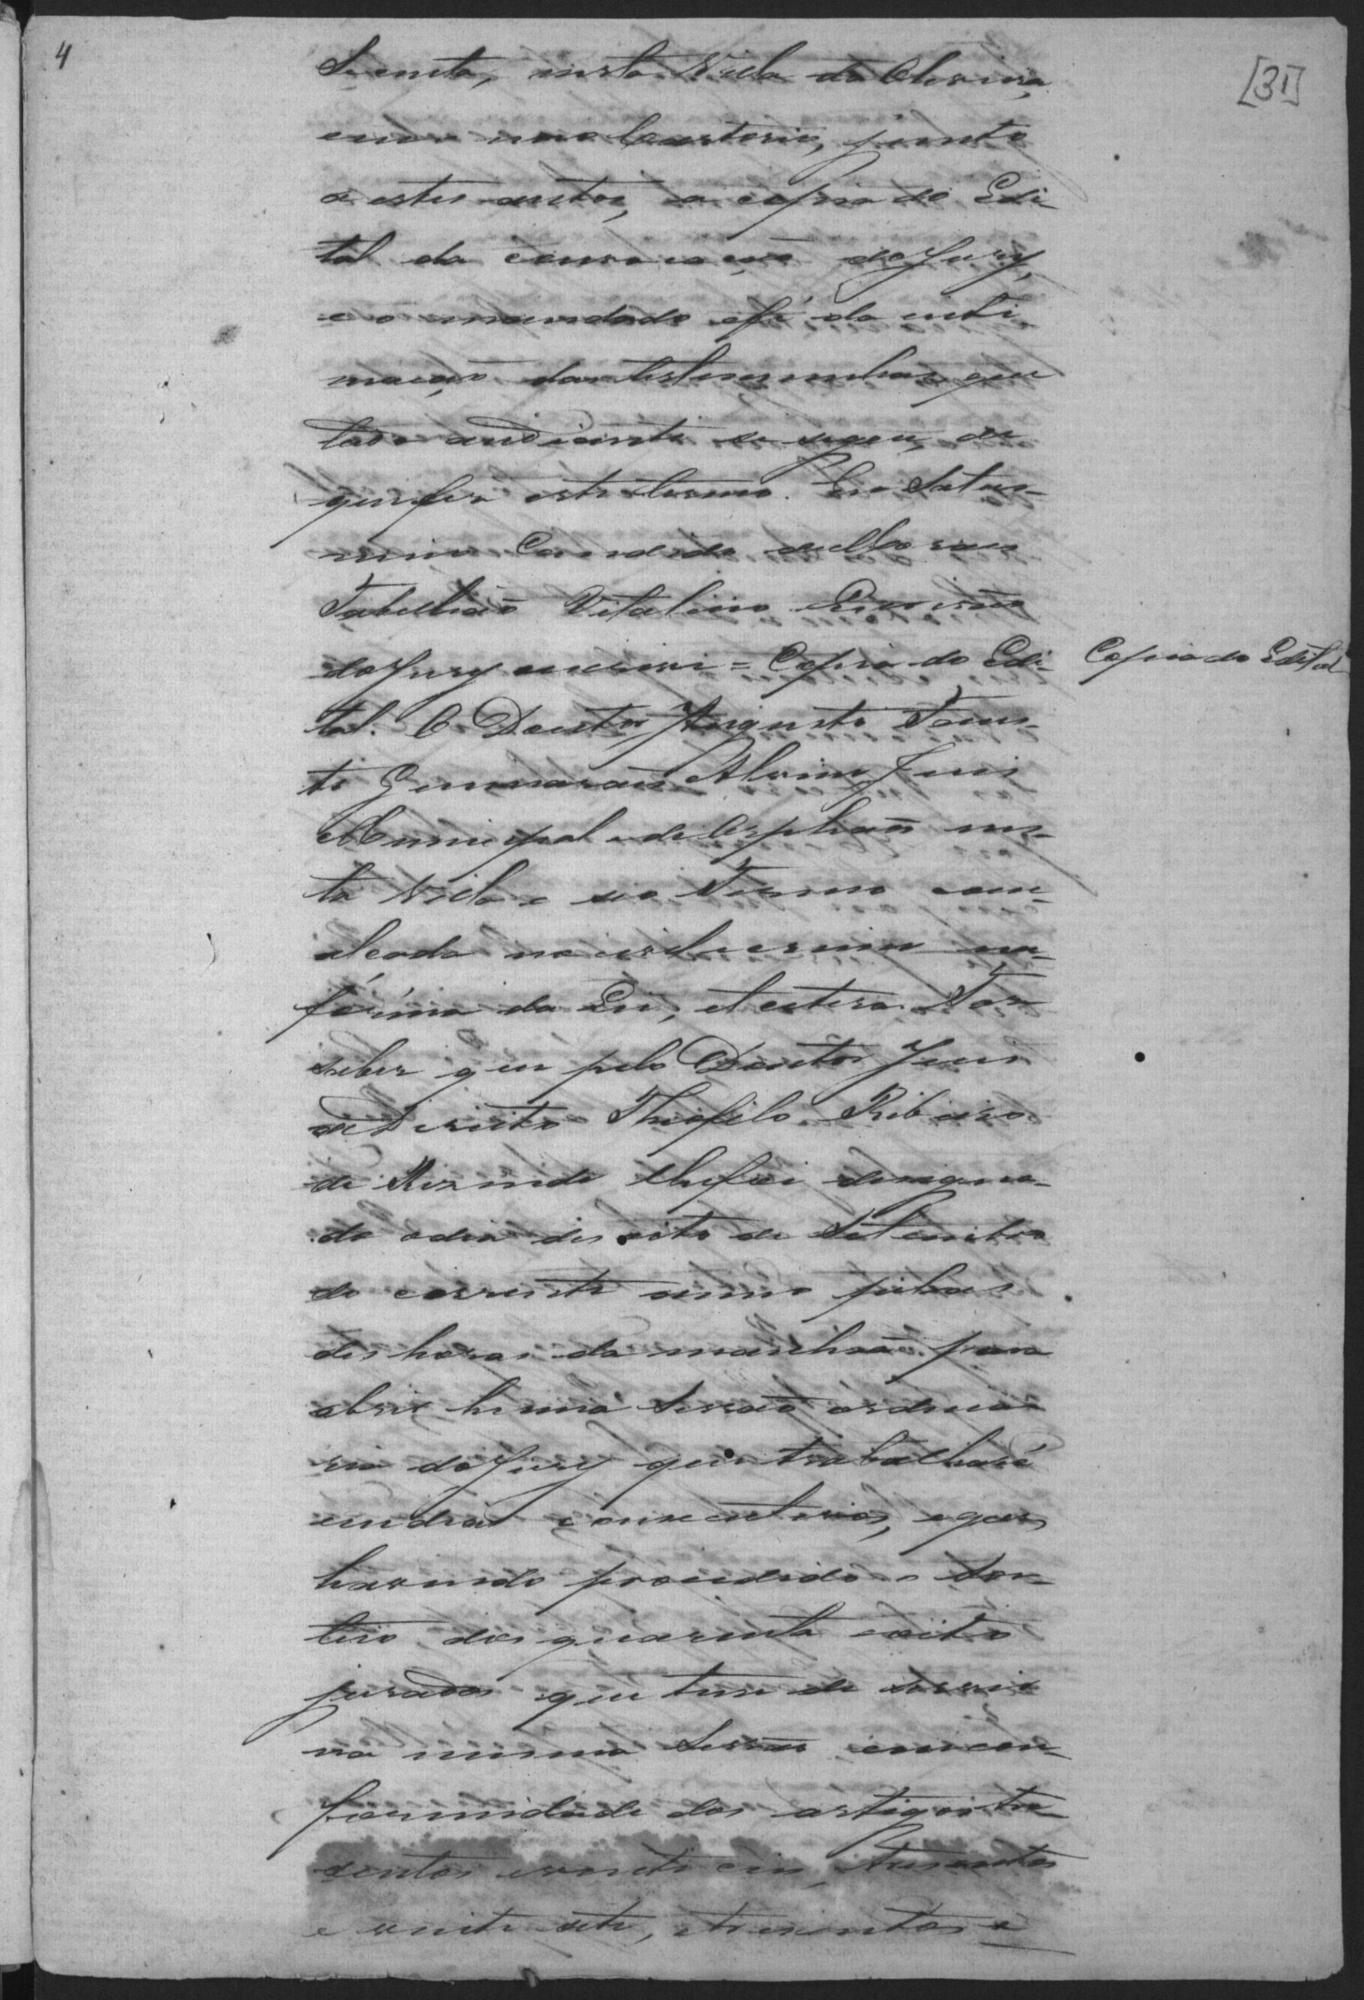 4
[31]
senta, nesta Villa de Oliveira,
em meo Cartorio, junto
a estes autos, a copia do Edi-
tal da convocação do Jury,
e o mandado e fé da inti
mação das testemunhas, que
tudo audiante se segue, de
que fiz este termo. Eu Satur-
nino Candido de
Tabellião Vitalicio Escrivão
do Jury escrivi = Copia do Edi-
Copia do Edital
tal. O Doutor Augusto
Guimaraes Alvino Juis
Municipal e de Orphaõs nes-
ta Villa e seo Termo com
alçada no civel e crime na
fórma da Lei, et cetera. Faz
saber que pelo Doutor Juis
de Direito Theofilo Ribeiro
de Rezende lhe foi designa-
do o dia desoito de Setembro
do corrente anno pelas
des horas da manhaã para
abrir huma Sessaõ ordina
ria do Jury que trabalhará
em dias consecutivos, e que
havendo procedido o sor-
teio dos quarenta e oito
jurados que tem de servir
na mesma Sessaõ em con-
formidade dos artigos tre
sentos e vinte e seis, tresentos
e vinte sete, tresentos e